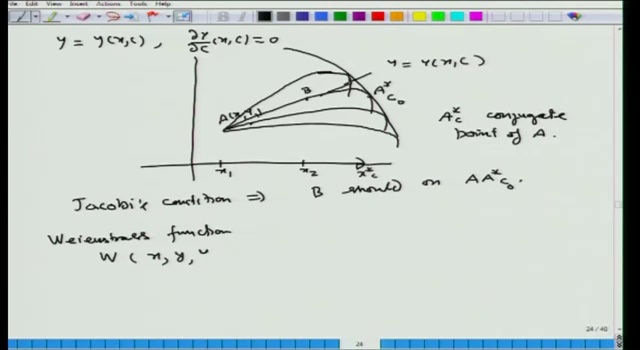 File Edit View Insert Actions Tools Help
y = y(x,c) , ∂y/∂c (x,c) = 0
y = y(x,c)
B
A*c₀
A(x,y,)
A*c conjugate
point of A.
x₁ x₂ x*c
Jacobi's condition ⇒ B should on AA*c₀.
Weierstrass function
W ( x, y,
24/40
24